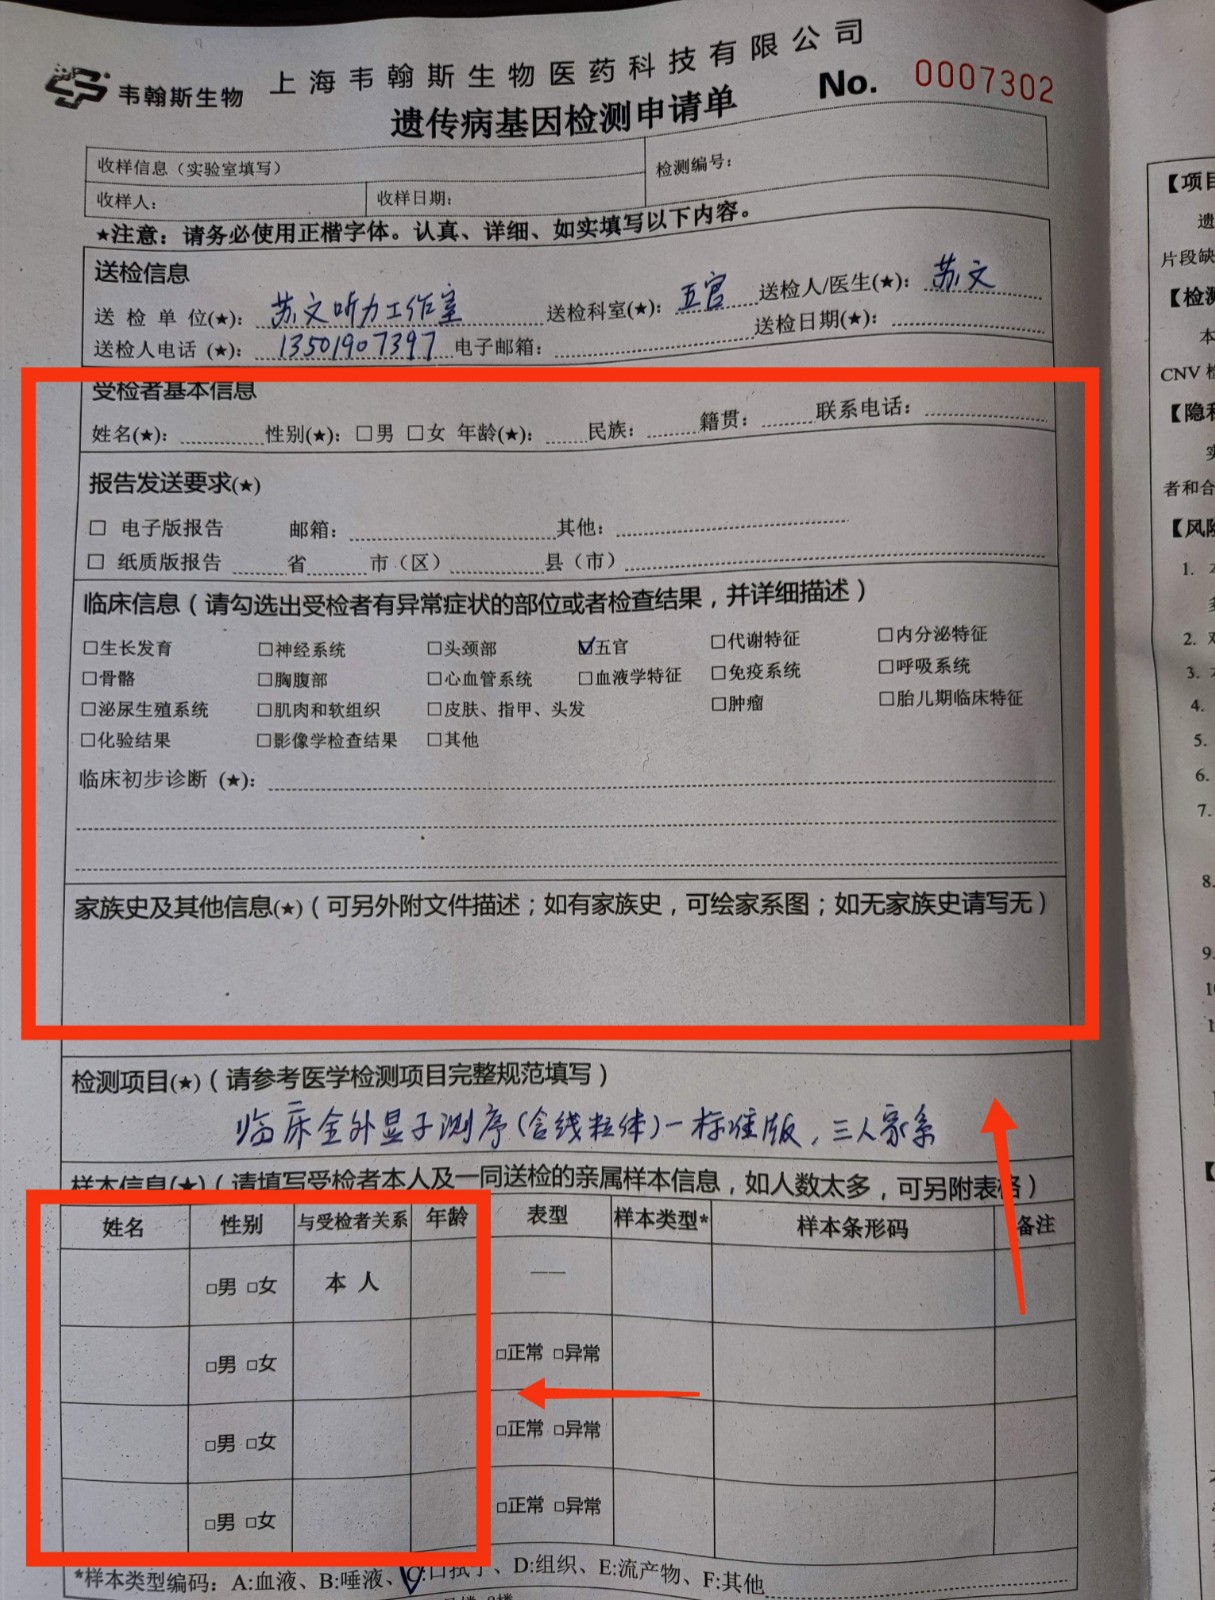 韦翰斯生物 上海韦翰斯生物医药科技有限公司 No. 0007302
遗传病基因检测申请单
收样信息（实验室填写） 检测编号：
收样人： 收样日期：
★注意：请务必使用正楷字体。认真、详细、如实填写以下内容。
送检信息
送检单位(★)： 苏文听力工作室 送检科室(★)： 五官 送检人/医生(★)： 苏文
送检人电话（★)： 13501907397 电子邮箱： 送检日期(★)：
受检者基本信息
姓名(★)： 性别(★)：□男 □女 年龄(★)： 民族： 籍贯： 联系电话：
报告发送要求(★)
□ 电子版报告 邮箱： 其他：
□ 纸质版报告 省 市（区） 县（市）
临床信息（请勾选出受检者有异常症状的部位或者检查结果，并详细描述）
□生长发育 □神经系统 □头颈部 ☑五官 □代谢特征 □内分泌特征
□骨骼 □胸腹部 □心血管系统 □血液学特征 □免疫系统 □呼吸系统
□泌尿生殖系统 □肌肉和软组织 □皮肤、指甲、头发 □肿瘤 □胎儿期临床特征
□化验结果 □影像学检查结果 □其他
临床初步诊断（★)：
家族史及其他信息(★)（可另外附文件描述；如有家族史，可绘家系图；如无家族史请写无）
检测项目(★)（请参考医学检测项目完整规范填写）
临床全外显子测序(含线粒体)-标准版，三人家系
样本信息(★)（请填写受检者本人及一同送检的亲属样本信息，如人数太多，可另附表格）
姓名 性别 与受检者关系 年龄 表型 样本类型* 样本条形码 备注
□男 □女 本人 ——
□男 □女 □正常 □异常
□男 □女 □正常 □异常
□男 □女 □正常 □异常
*样本类型编码：A:血液、B:唾液、C:口拭子、D:组织、E:流产物、F:其他
【项目
遗
片段缺
【检测
本
CNV 检
【隐私
者和合
【风险
1.
2.
3.
4.
5.
6.
7.
8.
9.